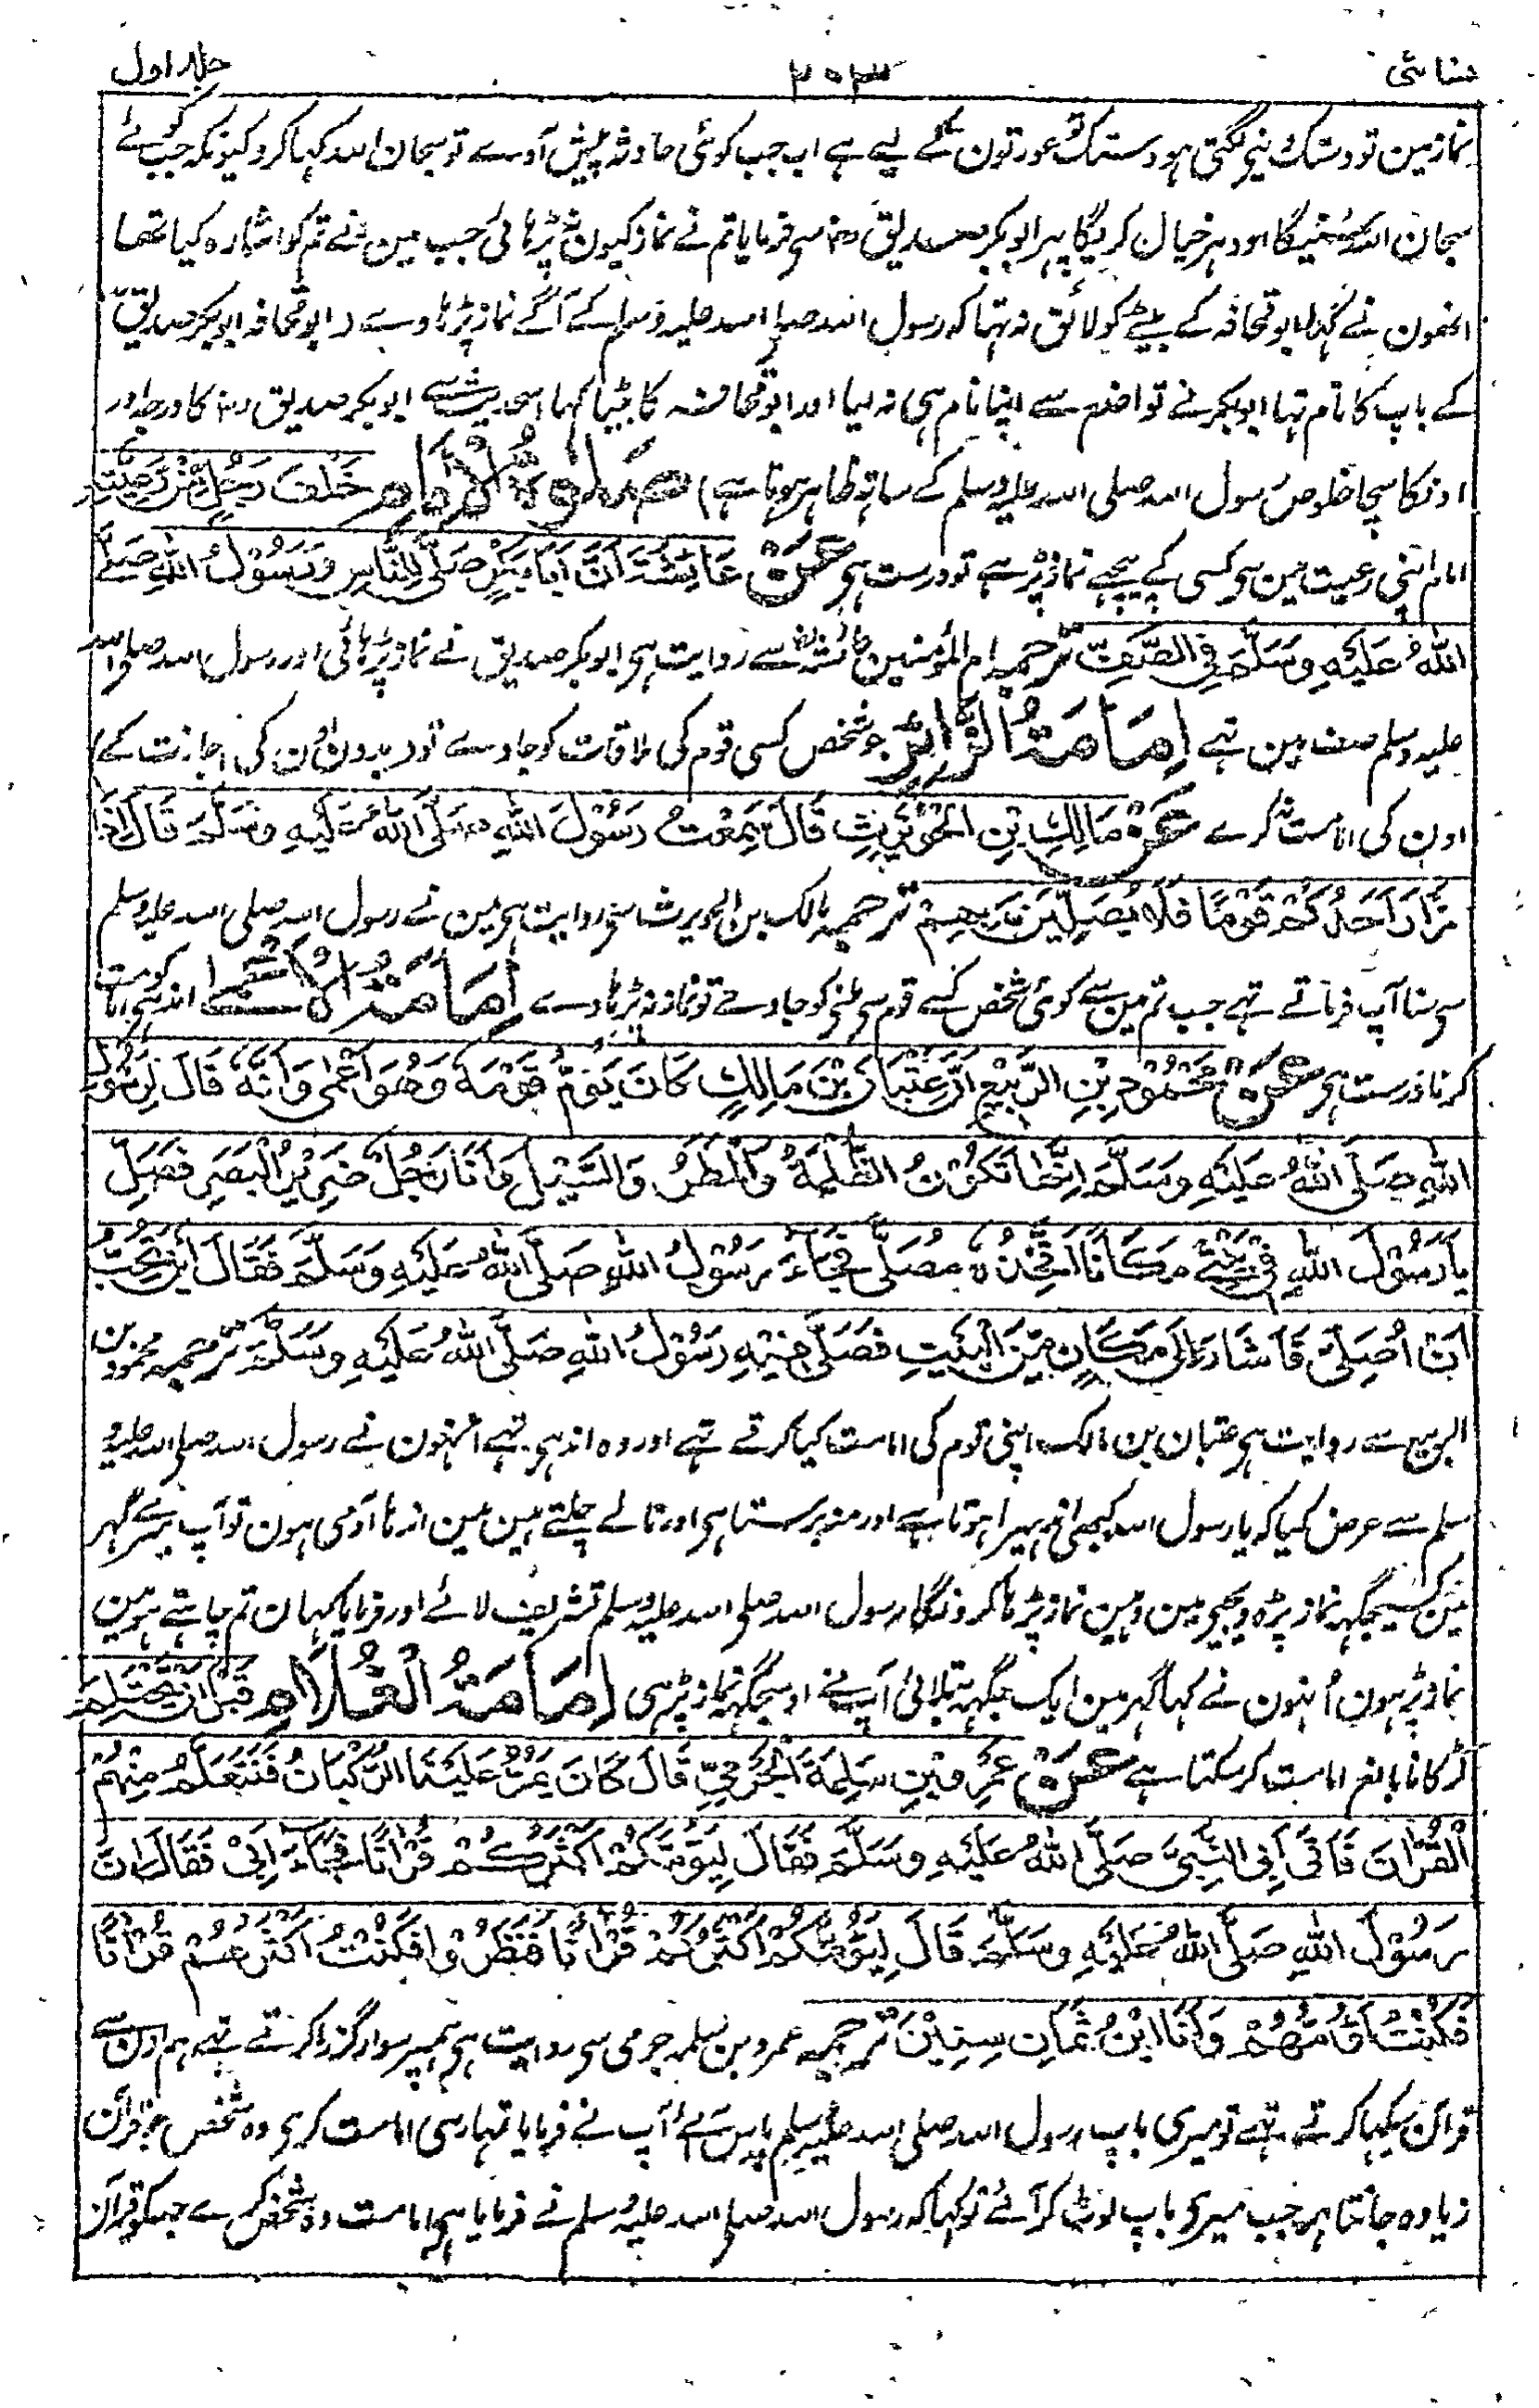 نسائی ۳۰۳ جلد اول
نماز مین تو دستک نیچے لگتی ہو دستک تو عورتون کے لیے ہے اب جب کوئی حادثہ پیش آوے تو سبحان اللہ کہا کرو کیونکہ جب کوئے
سبحان اللہ سُنیگا اودہر خیال کریگا پہر ابو بکر صدیق رض سے فرمایا تم نے نماز کیون نہ پڑہائی جب مین نے تم کو اشارہ کیا تھا
انھون نے کہا ابو قحافہ کے بیٹے کو لائق نہ تہا کہ رسول اللہ صلی اللہ علیہ وسلم کے آگے نماز پڑہاوے (ابو قحافہ ابو بکر صدیق
کے باپ کا نام تہا ابو بکر نے تواضع سے اپنا نام ہی نہ لیا اور ابو قحافہ کا بیٹا کہا اس حدیث سے ابو بکر صدیق رض کا درجہ اور
اونکا سچا خلوص رسول اللہ صلی اللہ علیہ وسلم کے ساتہ ظاہر ہوتا ہے) صَلٰوۃُ الْاِمَامِ خَلْفَ رَجُلٍ مِّنْ رَعِیَّتِہٖ
امام اپنی رعیت مین سے کسی کے پیچہے نماز پڑہے تو درست ہی عَنْ عَائِشَۃَ اَنَّ اَبَا بَکْرٍ صَلّٰی لِلنَّاسِ وَرَسُوْلُ اللّٰہِ صَلَّی
اللّٰہُ عَلَیْہِ وَسَلَّمَ فِی الصَّفِّ ترجمہ ام المؤمنین عائشہ رض سے روایت ہی ابو بکر صدیق نے نماز پڑہائی اور رسول اللہ صلی اللہ
علیہ وسلم صف مین تہے اِمَامَۃُ الزَّائِرِ جو شخص کسی قوم کی ملاقات کو جاوے تو (بدون اون کی اجازت کے)
اون کی امامت نہ کرے عَنْ مَالِکِ بْنِ الْحُوَیْرِثِ قَالَ سَمِعْتُ رَسُوْلَ اللّٰہِ صَلَّی اللّٰہُ عَلَیْہِ وَسَلَّمَ قَالَ اِذَا
زَارَ اَحَدُکُمْ قَوْمًا فَلَا یُصَلِّیَنَّ بِہِمْ ترجمہ مالک بن الحویرث سے روایت ہی مین نے رسول اللہ صلی اللہ علیہ وسلم
سے سنا آپ فرماتے تہے جب تم مین سے کوئی شخص کسی قوم سے ملنے کو جاوے تو نماز نہ پڑہاوے اِمَامَۃُ الْاَعْمٰی اندہی کو امامت
کرنا درست ہی عَنْ مَحْمُوْدِ بْنِ الرَّبِیْعِ اَنَّ عِتْبَانَ بْنَ مَالِکٍ کَانَ یَؤُمُّ قَوْمَہٗ وَھُوَ اَعْمٰی وَاَنَّہٗ قَالَ لِرَسُوْلِ
اللّٰہِ صَلَّی اللّٰہُ عَلَیْہِ وَسَلَّمَ اِنَّھَا تَکُوْنُ الظُّلْمَۃُ وَالْمَطَرُ وَالسَّیْلُ وَاَنَا رَجُلٌ ضَرِیْرُ الْبَصَرِ فَصَلِّ
یَا رَسُوْلَ اللّٰہِ فِیْ بَیْتِیْ مَکَانًا اَتَّخِذُہٗ مُصَلًّی فَجَاءَ رَسُوْلُ اللّٰہِ صَلَّی اللّٰہُ عَلَیْہِ وَسَلَّمَ فَقَالَ اَیْنَ تُحِبُّ
اَنْ اُصَلِّیَ فَاَشَارَ اِلٰی مَکَانٍ مِّنَ الْبَیْتِ فَصَلّٰی فِیْہِ رَسُوْلُ اللّٰہِ صَلَّی اللّٰہُ عَلَیْہِ وَسَلَّمَ ترجمہ محمود بن
الربیع سے روایت ہی عتبان بن مالک اپنی قوم کی امامت کیا کرتے تہے اور وہ اندہی تہے اُنہون نے رسول اللہ صلی اللہ علیہ و
سلم سے عرض کیا کہ یا رسول اللہ کبھی اندہیرا ہوتا ہے اور منہ برستا ہی اور نالے چلتے ہین مین اندہا آدمی ہون تو آپ میرے گہر
مین کسی جگہہ نماز پڑہ دیجیے مین وہین نماز پڑہا کرونگا رسول اللہ صلی اللہ علیہ وسلم تشریف لائے اور فرمایا کہان تم چاہتے ہو مین
نماز پڑہون اُنہون نے کہا گہر مین ایک جگہہ بتلائی آپ نے اوسیجگہہ نماز پڑہی اِمَامَۃُ الْغُلَامِ قَبْلَ اَنْ یَّحْتَلِمَ
لڑکا نابالغ امامت کر سکتا ہے عَنْ عَمْرِو بْنِ سَلِمَۃَ الْجَرْمِیِّ قَالَ کَانَ یَمُرُّ عَلَیْنَا الرُّکْبَانُ فَنَتَعَلَّمُ مِنْہُمُ
الْقُرْاٰنَ فَاَتٰی اَبِی النَّبِیَّ صَلَّی اللّٰہُ عَلَیْہِ وَسَلَّمَ فَقَالَ لِیَؤُمَّکُمْ اَکْثَرُکُمْ قُرْاٰنًا فَجَاءَ اَبِیْ فَقَالَ اِنَّ
رَسُوْلَ اللّٰہِ صَلَّی اللّٰہُ عَلَیْہِ وَسَلَّمَ قَالَ لِیَؤُمَّکُمْ اَکْثَرُکُمْ قُرْاٰنًا فَنَظَرُوْا فَکُنْتُ اَکْثَرَھُمْ قُرْاٰنًا
فَکُنْتُ اَؤُمُّھُمْ وَاَنَا ابْنُ ثَمَانِ سِنِیْنَ ترجمہ عمرو بن سلمہ جرمی سے روایت ہی ہمپر سوار گزرا کرتے تہے ہم اون سے
قرآن سیکہا کرتے تہے تو میری باپ رسول اللہ صلی اللہ علیہ وسلم پاس گئے آپ نے فرمایا تمہاری امامت کری وہ شخص جو قرآن
زیادہ جانتا ہی جب میری باپ لوٹ کر آئے تو کہا کہ رسول اللہ صلی اللہ علیہ وسلم نے فرمایا ہی امامت وہ شخص کرے جسکو قرآن